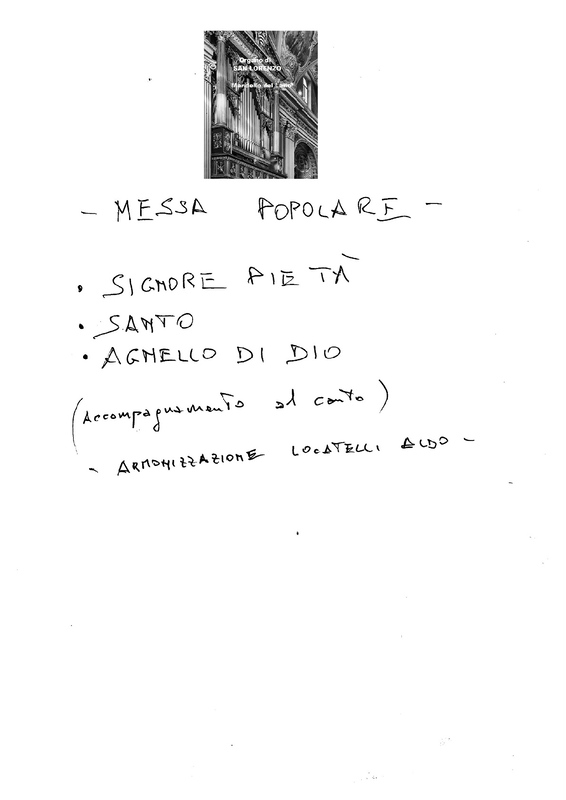 Organo di
SAN LORENZO
Mandello del Lario
- MESSA POPOLARE -
• SIGNORE PIETÀ
• SANTO
• AGNELLO DI DIO
(Accompagnamento al canto)
- ARMONIZZAZIONE LOCATELLI ALDO -